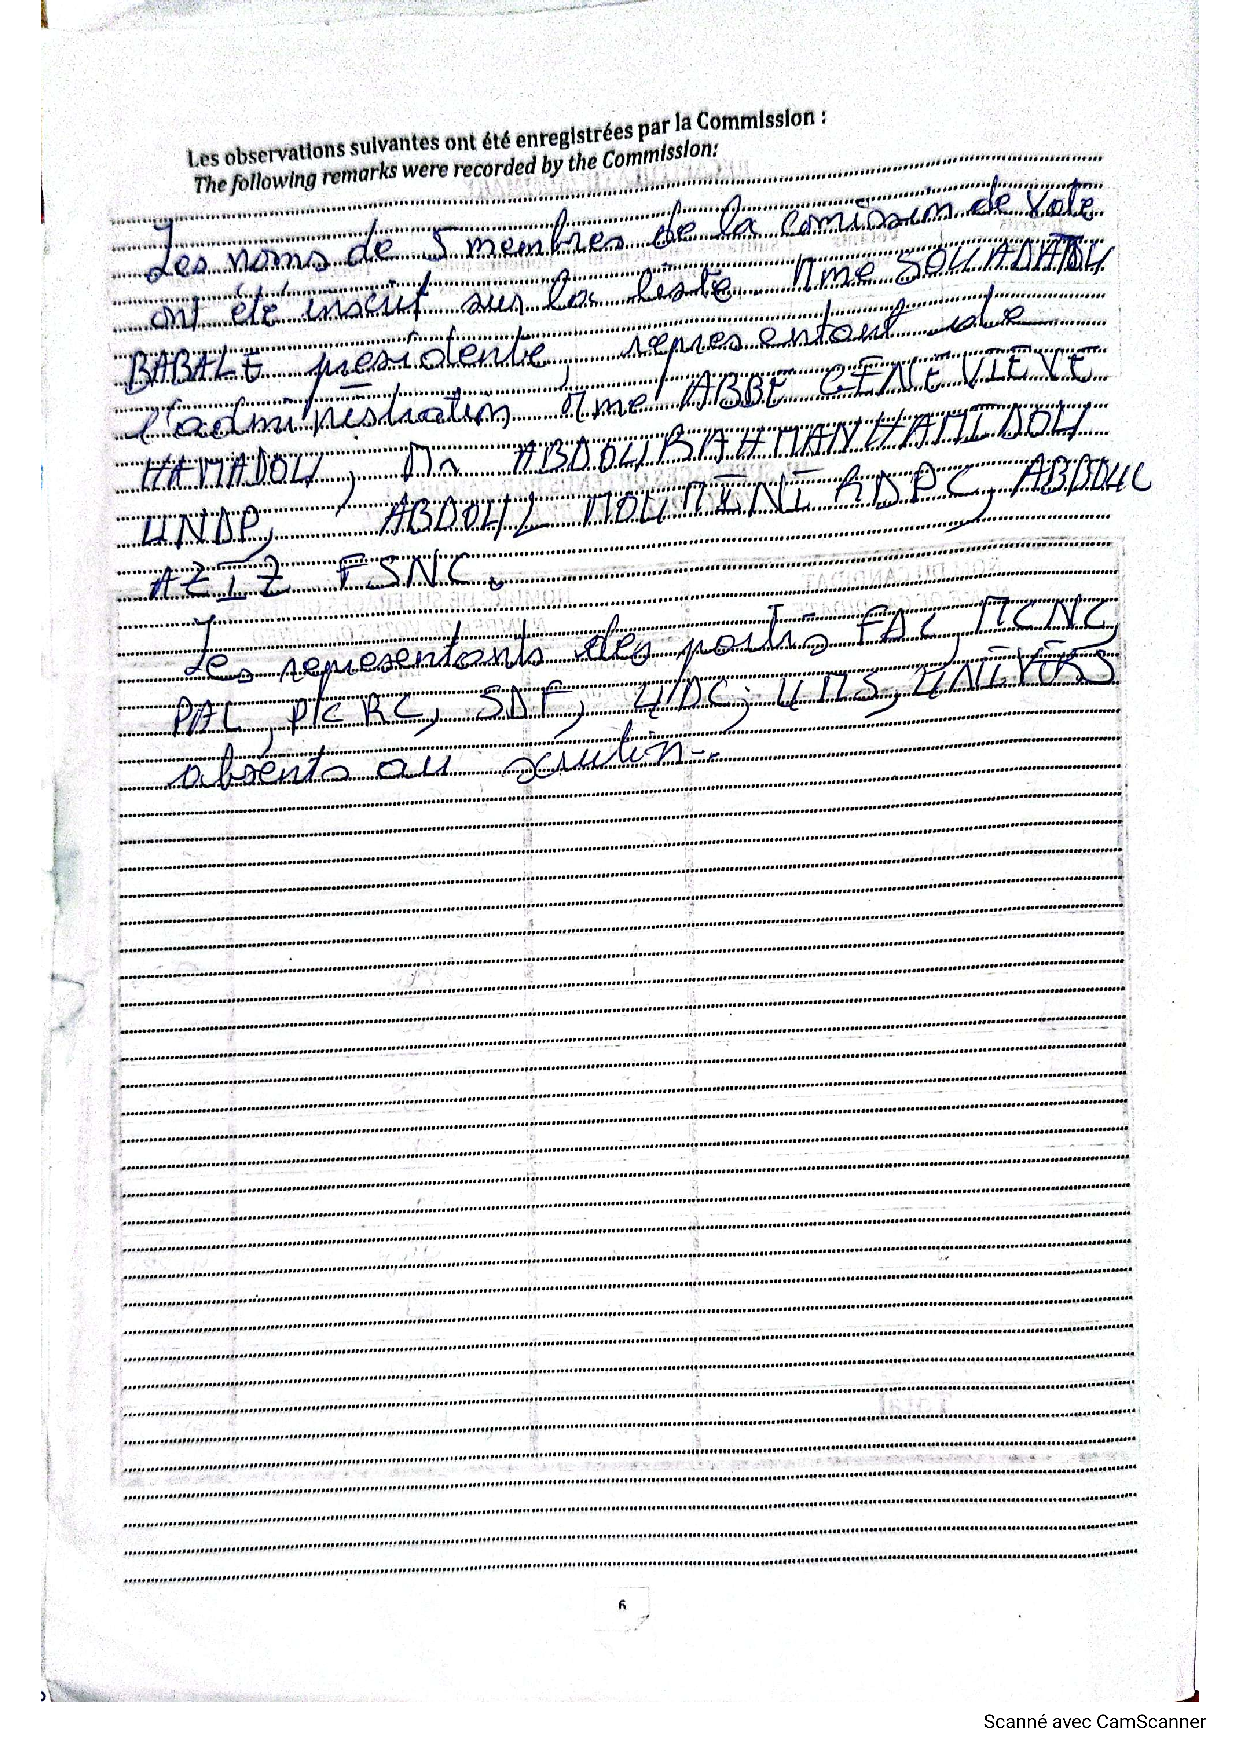 Les observations suivantes ont été enregistrées par la Commission :
The following remarks were recorded by the Commission:
Les noms de 5 membres de la comission de vote
ont été inscrit sur la liste. Mme SOUADATOU
BABALE presidente, representant de
l'administration, Mme ABBE GENEVIEVE
HAMADOU, Mr ABDOURAHMAN HAMIDOU
UNDP, ABDOUL MOUMINI RDPC, ABDOUL
AZIZ FSNC.
Les representants des partis FAC, MCNC,
PAL, PCRC, SDF, UDC, UMS, UNIVERS
absents au scrutin-.
6
Scanné avec CamScanner